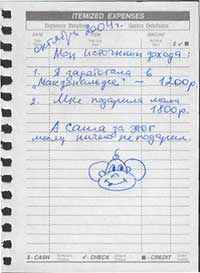 ITEMIZED EXPENSES
октябрь 2004 г.
Мои источники дохода:
1. Я заработала в
"Макдональдсе" — 1200р.
2. Мне подарила мама
1800р.
А Саша за этот
месяц ничего не подарил.
$ - CASH ✓ - CHECK ■ - CREDIT